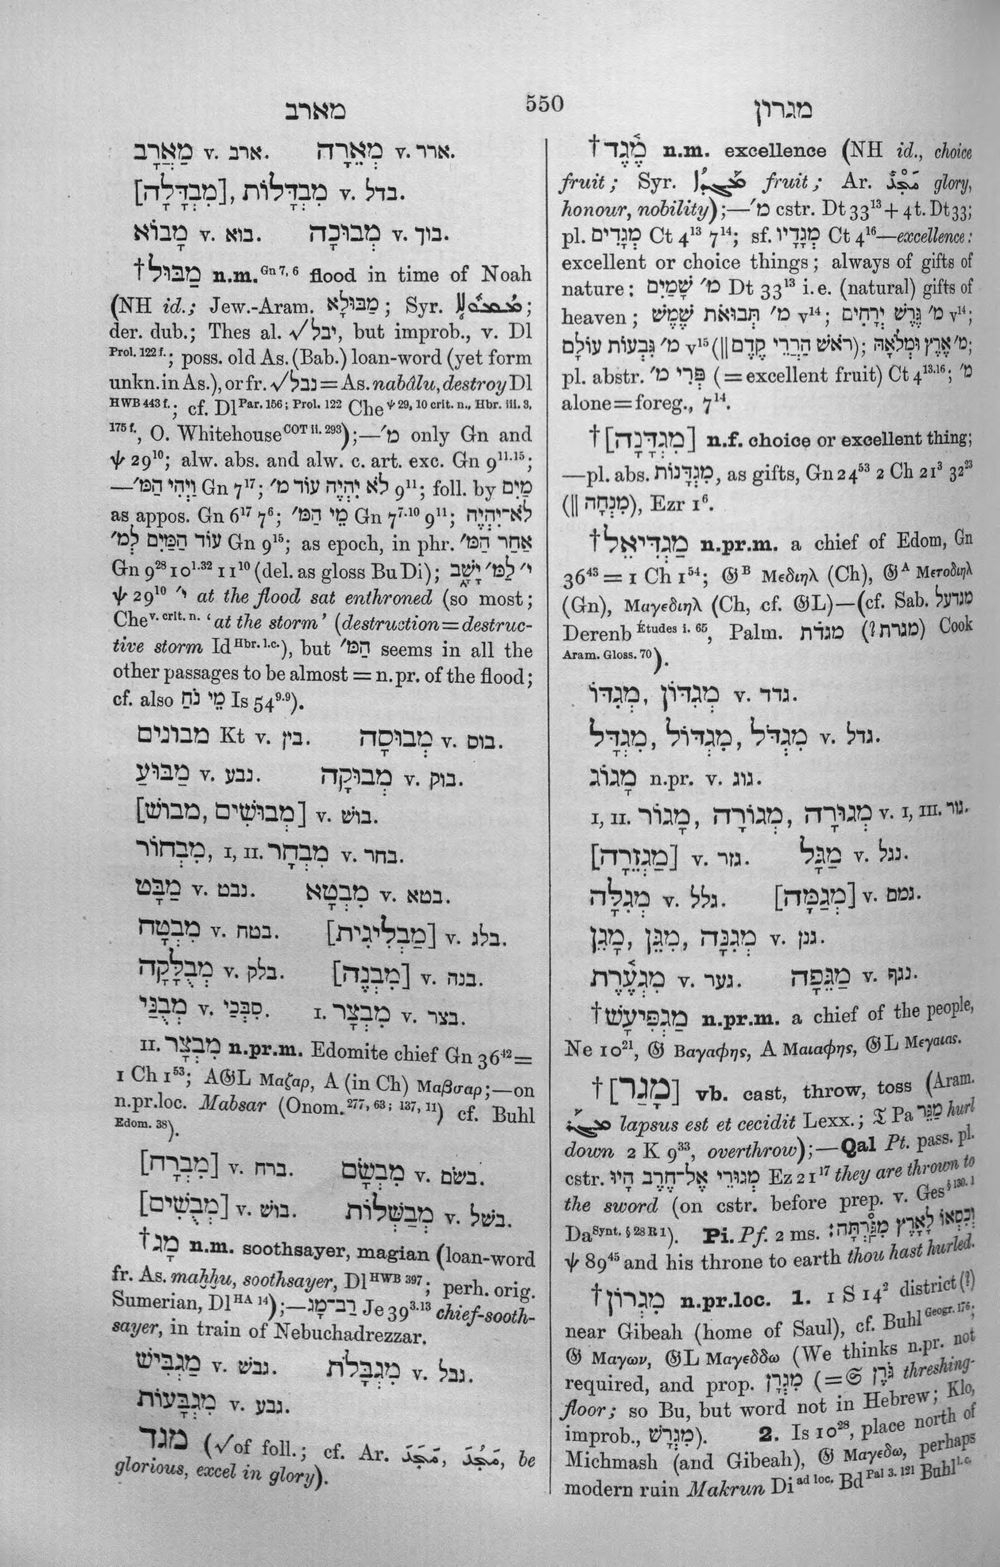 מארב 550 מגרון
מַאֲרָב v. ארב. מְאֵרָה v. ארר.
[מִבְדָּלָה], מִבְדָּלוֹת v. בדל.
מָבוֹא v. בוא. מְבוּכָה v. בוך.
†מַבּוּל n.m. Gn 7, 6 flood in time of Noah
(NH id.; Jew.-Aram. מַבּוּלָא; Syr. ;
der. dub.; Thes al. √יבל, but improb., v. Dl
Prol. 122 f.; poss. old As. (Bab.) loan-word (yet form
unkn. in As.), or fr. √נבל = As. nabâlu, destroy Dl
HWB 443 f.; cf. Dl Par. 156; Prol. 122 Che ψ 29, 10 crit. n., Hbr. iii. 3,
175 f., O. Whitehouse COT ii. 293);—מ׳ only Gn and
ψ 29¹⁰; alw. abs. and alw. c. art. exc. Gn 9¹¹·¹⁵;
—וַיְהִי הַמּ׳ Gn 7¹⁷; לֹא יִהְיֶה עוֹד מ׳ 9¹¹; foll. by מַיִם
as appos. Gn 6¹⁷ 7⁶; מֵי הַמּ׳ Gn 7⁷·¹⁰ 9¹¹; לֹא־יִהְיֶה
עוֹד הַמַּיִם לְמ׳ Gn 9¹⁵; as epoch, in phr. אַחַר הַמּ׳
Gn 9²⁸ 10¹·³² 11¹⁰ (del. as gloss Bu Di); י׳ לַמּ׳ יָשָׁב
ψ 29¹⁰ י׳ at the flood sat enthroned (so most;
Che v. crit. n. ‘at the storm’ (destruction = destruc-
tive storm Id Hbr. l.c.), but הַמּ׳ seems in all the
other passages to be almost = n.pr. of the flood;
cf. also מֵי נֹחַ Is 54⁹·⁹).
מבונים Kt v. בין. מְבוּסָה v. בוס.
מַבּוּעַ v. נבע. מְבוּקָה v. בוק.
[מְבוּשִׁים, מבוש] v. בוש.
מִבְחוֹר, I, II. מִבְחָר v. בחר.
מַבָּט v. נבט. מִבְטָא v. בטא.
מִבְטָח v. בטח. [מַבְלִיגִית] v. בלג.
מְבֻלָּקָה v. בלק. [מִבְנֶה] v. בנה.
מְבֻנַּי v. סִבְּכַי. I. מִבְצָר v. בצר.
II. מִבְצָר n.pr.m. Edomite chief Gn 36⁴² =
1 Ch 1⁵³; A𝔊L Μαζαρ, A (in Ch) Μαβσαρ;—on
n.pr.loc. Mabsar (Onom. 277, 63; 137, 11) cf. Buhl
Edom. 38).
[מִבְרָח] v. ברח. מִבְשָׂם v. בשם.
[מְבֻשִׁים] v. בוש. מְבַשְּׁלוֹת v. בשל.
†מָג n.m. soothsayer, magian (loan-word
fr. As. maḫḫu, soothsayer, Dl HWB 397; perh. orig.
Sumerian, Dl HA 14);—רַב־מָג Je 39³·¹³ chief-sooth-
sayer, in train of Nebuchadrezzar.
מַגְבִּישׁ v. גבש. מִגְבָּלֹת v. גבל.
מִגְבָּעוֹת v. גבע.
מגד (√of foll.; cf. Ar. مَجَدَ, مَجُدَ, be
glorious, excel in glory).
†מֶ֫גֶד n.m. excellence (NH id., choice
fruit; Syr. fruit; Ar. مَجْدٌ glory,
honour, nobility);—מ׳ cstr. Dt 33¹³ + 4 t. Dt 33;
pl. מְגָדִים Ct 4¹³ 7¹⁴; sf. מְגָדָיו Ct 4¹⁶—excellence:
excellent or choice things; always of gifts of
nature: מ׳ שָׁמַיִם Dt 33¹³ i.e. (natural) gifts of
heaven; מ׳ תְּבוּאֹת שֶׁמֶשׁ v¹⁴; מ׳ גֶּרֶשׁ יְרָחִים v¹⁴;
מ׳ גִּבְעוֹת עוֹלָם v¹⁵ (‖ רֹאשׁ הַרֲרֵי קֶדֶם); מ׳ אֶרֶץ וּמְלֹאָהּ;
pl. abstr. פְּרִי מ׳ (= excellent fruit) Ct 4¹³·¹⁶; מ׳
alone = foreg., 7¹⁴.
†[מִגְדָּנָה] n.f. choice or excellent thing;
—pl. abs. מִגְדָּנוֹת, as gifts, Gn 24⁵³ 2 Ch 21³ 32²³
(‖ מִנְחָה), Ezr 1⁶.
†מַגְדִּיאֵל n.pr.m. a chief of Edom, Gn
36⁴³ = 1 Ch 1⁵⁴; 𝔊ᴮ Μεδιηλ (Ch), 𝔊ᴬ Μετοδιηλ
(Gn), Μαγεδιηλ (Ch, cf. 𝔊L)—(cf. Sab. מגדעל
Derenb Études i. 65, Palm. מגדת (? מגרת) Cook
Aram. Gloss. 70).
מְגִדּוֹ, מְגִדּוֹן v. גדד.
מִגְדָּל, מִגְדּוֹל, מִגְדֹּל v. גדל.
מָגוֹג n.pr. v. גוג.
I, II. מָגוֹר, מְגוֹרָה, מְגוּרָה v. I, III. גור.
[מַגְזֵרָה] v. גזר. מַגָּל v. נגל.
מְגִלָּה v. גלל. [מְגַמָּה] v. גמם.
מָגֵן, מִגֵּן, מְגִנָּה v. גנן.
מִגְעֶ֫רֶת v. גער. מַגֵּפָה v. נגף.
†מַגְפִּיעָשׁ n.pr.m. a chief of the people,
Ne 10²¹, 𝔊 Βαγαφης, A Μαιαφης, 𝔊L Μεγαιας.
†[מָגַר] vb. cast, throw, toss (Aram.
lapsus est et cecidit Lexx.; 𝔗 Pa מַגֵּר hurl
down 2 K 9³³, overthrow);—Qal Pt. pass. pl.
cstr. מְגוּרֵי אֶל־חֶרֶב הָיוּ Ez 21¹⁷ they are thrown to
the sword (on cstr. before prep. v. Ges § 130. 1
Da Synt. § 28 R 1). Pi. Pf. 2 ms. וְכִסְאוֹ לָאָרֶץ מִגַּרְתָּה׃
ψ 89⁴⁵ and his throne to earth thou hast hurled.
†מִגְרוֹן n.pr.loc. 1. 1 S 14² district (?)
near Gibeah (home of Saul), cf. Buhl Geogr. 176;
𝔊 Μαγων, 𝔊L Μαγεδδω (We thinks n.pr. not
required, and prop. מִגְרָן (= 𝔖 גֹּרֶן threshing-
floor; so Bu, but word not in Hebrew; Klo,
improb., מִגְרָשׁ). 2. Is 10²⁸, place north of
Michmash (and Gibeah), 𝔊 Μαγεδω, perhaps
modern ruin Makrun Di ad loc. Bd Pal 3. 121 Buhl l.c.